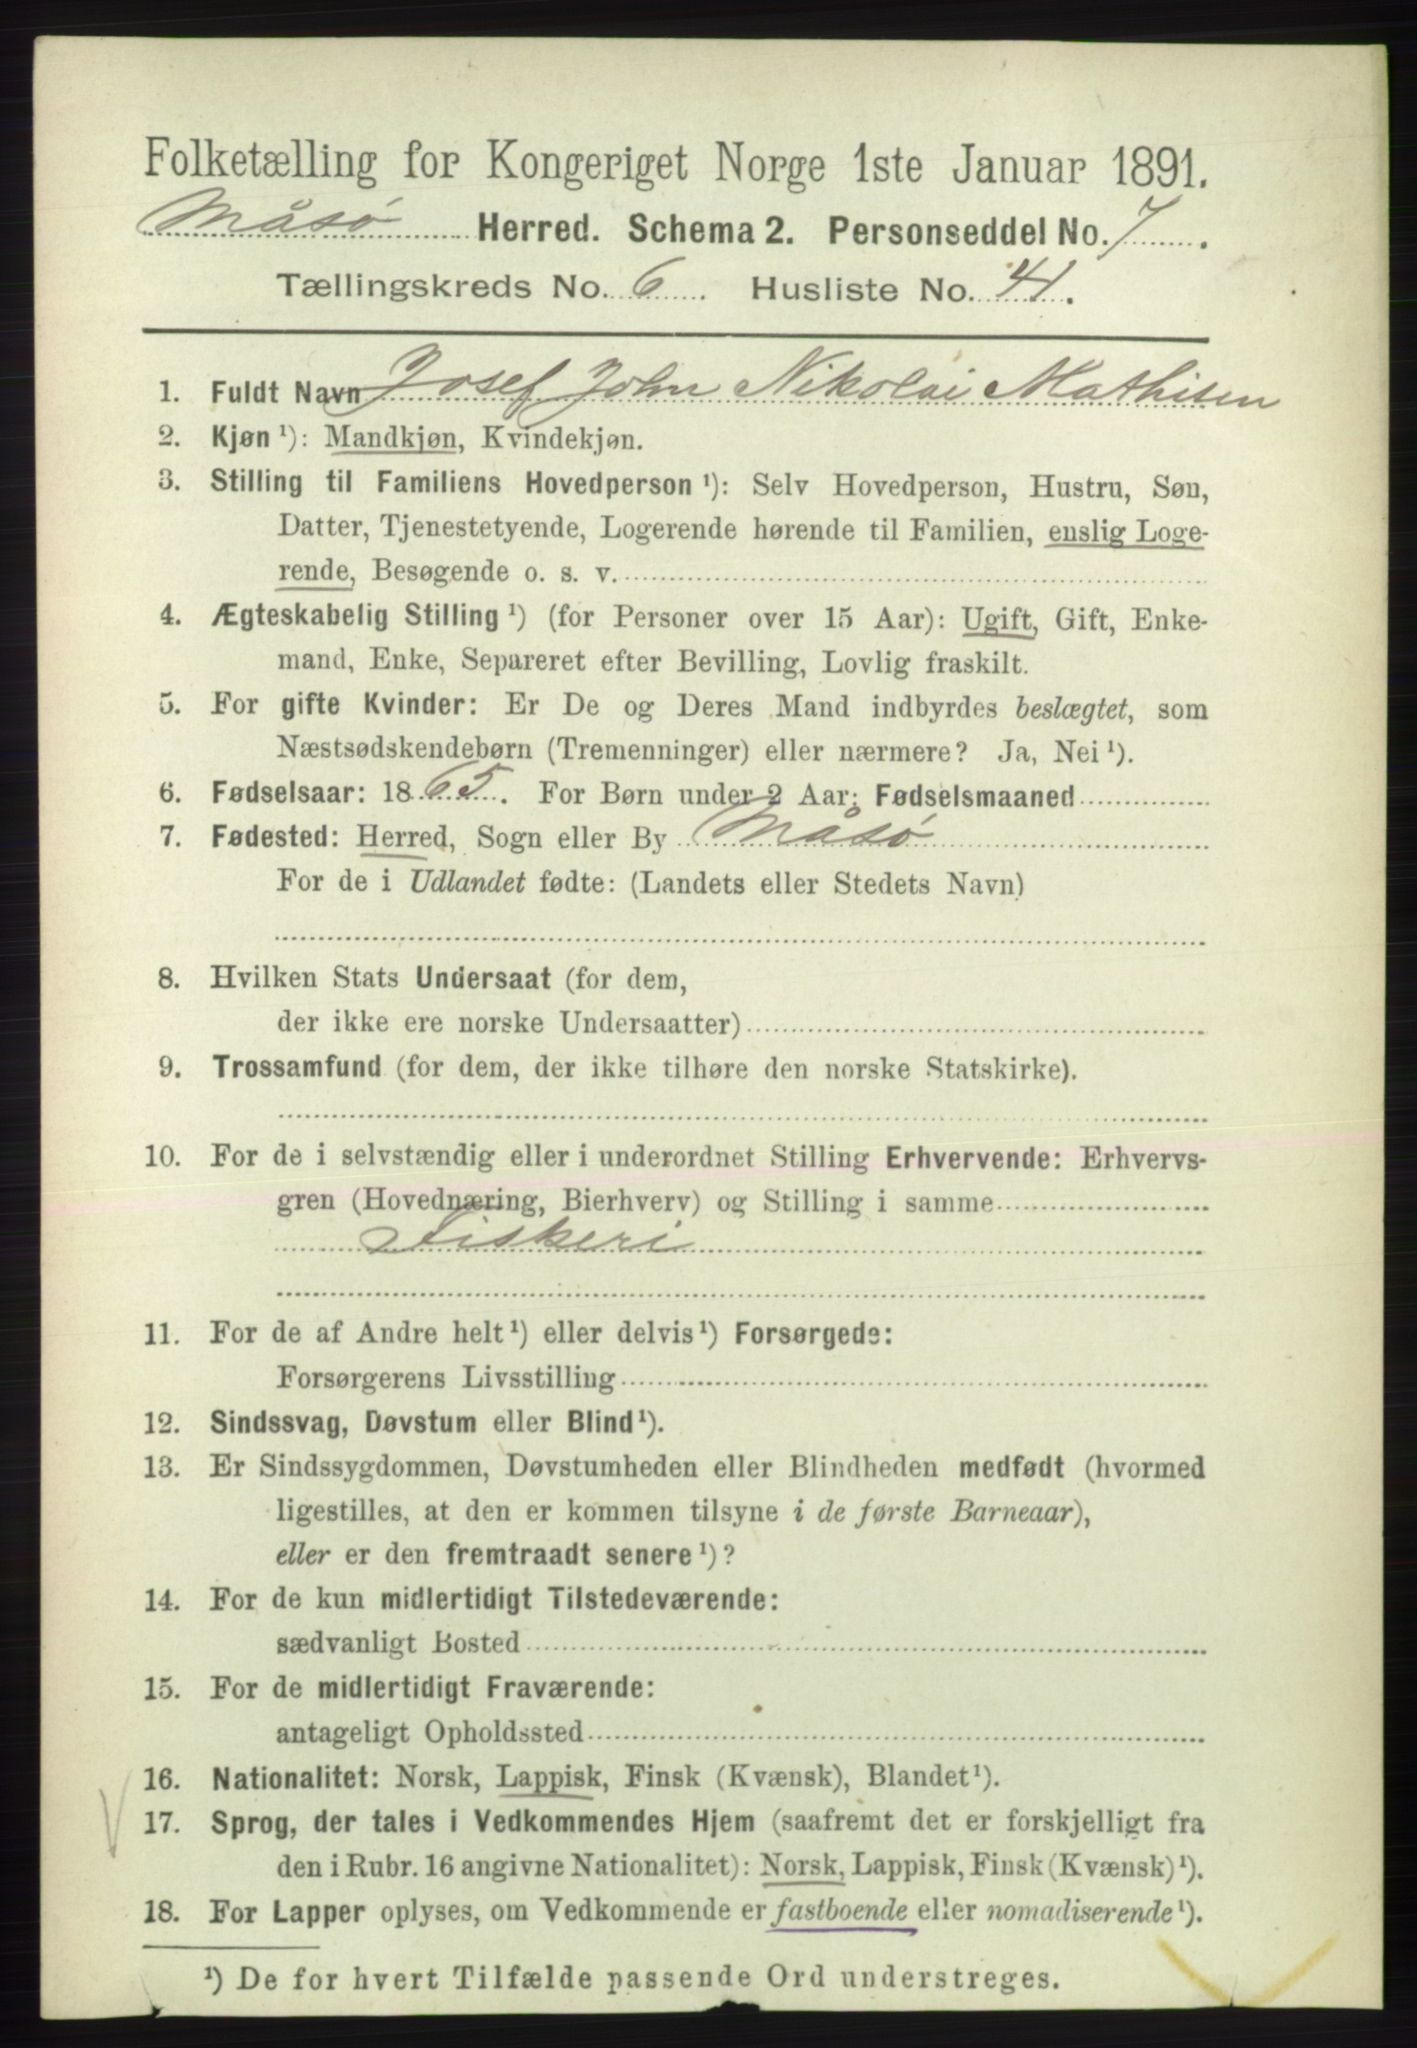 Folketælling for Kongeriget Norge 1ste Januar 1891.
Måsø Herred. Schema 2. Personseddel No. 7.
Tællingskreds No. 6. Husliste No. 41.
1. Fuldt Navn Josef John Nikolai Mathisen
2. Kjøn ¹): Mandkjøn, Kvindekjøn.
3. Stilling til Familiens Hovedperson ¹): Selv Hovedperson, Hustru, Søn,
Datter, Tjenestetyende, Logerende hørende til Familien, enslig Loge-
rende, Besøgende o. s. v.
4. Ægteskabelig Stilling ¹) (for Personer over 15 Aar): Ugift, Gift, Enke-
mand, Enke, Separeret efter Bevilling, Lovlig fraskilt.
5. For gifte Kvinder: Er De og Deres Mand indbyrdes beslægtet, som
Næstsødskendebørn (Tremenninger) eller nærmere? Ja, Nei ¹).
6. Fødselsaar: 1865. For Børn under 2 Aar: Fødselsmaaned
7. Fødested: Herred, Sogn eller By Måsø
For de i Udlandet fødte: (Landets eller Stedets Navn)
8. Hvilken Stats Undersaat (for dem,
der ikke ere norske Undersaatter)
9. Trossamfund (for dem, der ikke tilhøre den norske Statskirke).
10. For de i selvstændig eller i underordnet Stilling Erhvervende: Erhvervs-
gren (Hovednæring, Bierhverv) og Stilling i samme
Fiskeri
11. For de af Andre helt ¹) eller delvis ¹) Forsørgede:
Forsørgerens Livsstilling
12. Sindssvag, Døvstum eller Blind ¹).
13. Er Sindssygdommen, Døvstumheden eller Blindheden medfødt (hvormed
ligestilles, at den er kommen tilsyne i de første Barneaar),
eller er den fremtraadt senere ¹)?
14. For de kun midlertidigt Tilstedeværende:
sædvanligt Bosted
15. For de midlertidigt Fraværende:
antageligt Opholdssted
16. Nationalitet: Norsk, Lappisk, Finsk (Kvænsk), Blandet ¹).
17. Sprog, der tales i Vedkommendes Hjem (saafremt det er forskjelligt fra
den i Rubr. 16 angivne Nationalitet): Norsk, Lappisk, Finsk (Kvænsk) ¹).
18. For Lapper oplyses, om Vedkommende er fastboende eller nomadiserende ¹).
¹) De for hvert Tilfælde passende Ord understreges.